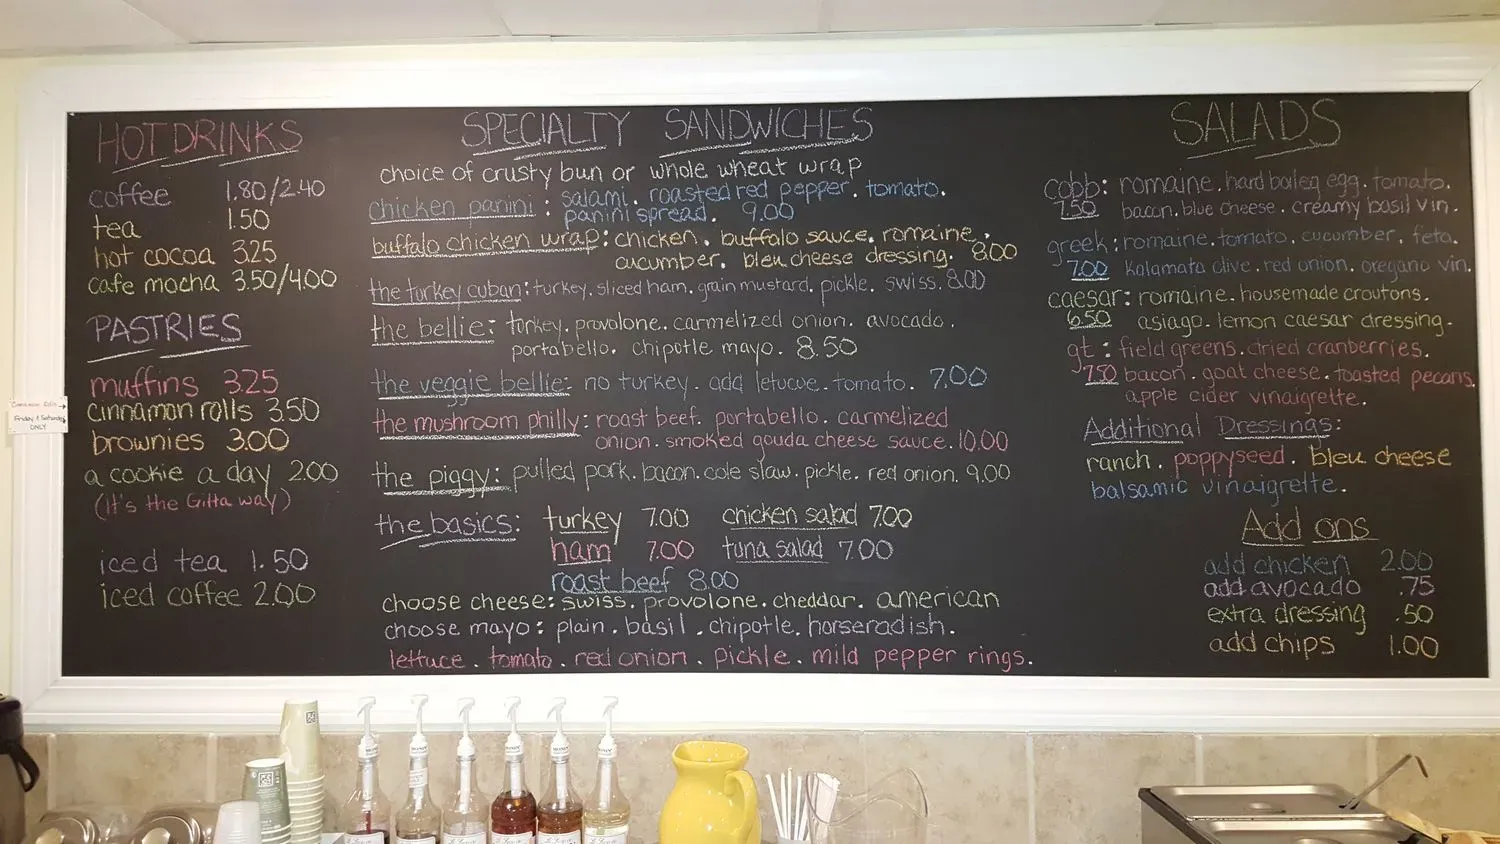 HOT DRINKS
coffee 1.80/2.40
tea 1.50
hot cocoa 3.25
cafe mocha 3.50/4.00
PASTRIES
muffins 3.25
cinnamon rolls 3.50
brownies 3.00
a cookie a day 2.00
(it's the Gitta way)
iced tea 1.50
iced coffee 2.00
SPECIALTY SANDWICHES
choice of crusty bun or whole wheat wrap
chicken panini: salami. roasted red pepper. tomato.
panini spread. 9.00
buffalo chicken wrap: chicken. buffalo sauce. romaine.
cucumber. bleu cheese dressing. 8.00
the turkey cuban: turkey. sliced ham. grain mustard. pickle. swiss. 8.00
the bellie: turkey. provolone. carmelized onion. avocado.
portabello. chipotle mayo. 8.50
the veggie bellie: no turkey. add letucve. tomato. 7.00
the mushroom philly: roast beef. portabello. carmelized
onion. smoked gouda cheese sauce. 10.00
the piggy: pulled pork. bacon. cole slaw. pickle. red onion. 9.00
the basics: turkey 7.00 chicken salad 7.00
ham 7.00 tuna salad 7.00
roast beef 8.00
choose cheese: swiss. provolone. cheddar. american
choose mayo: plain. basil. chipotle. horseradish.
lettuce. tomato. red onion. pickle. mild pepper rings.
SALADS
cobb: romaine. hard boiled egg. tomato.
7.50 bacon. blue cheese. creamy basil vin.
greek: romaine. tomato. cucumber. feta.
7.00 kalamata olive. red onion. oregano vin.
caesar: romaine. housemade croutons.
6.50 asiago. lemon caesar dressing.
gt: field greens. dried cranberries.
7.50 bacon. goat cheese. toasted pecans.
apple cider vinaigrette.
Additional Dressings:
ranch. poppyseed. bleu cheese
balsamic vinaigrette.
Add ons
add chicken 2.00
add avocado .75
extra dressing .50
add chips 1.00
Friday & Saturday
ONLY